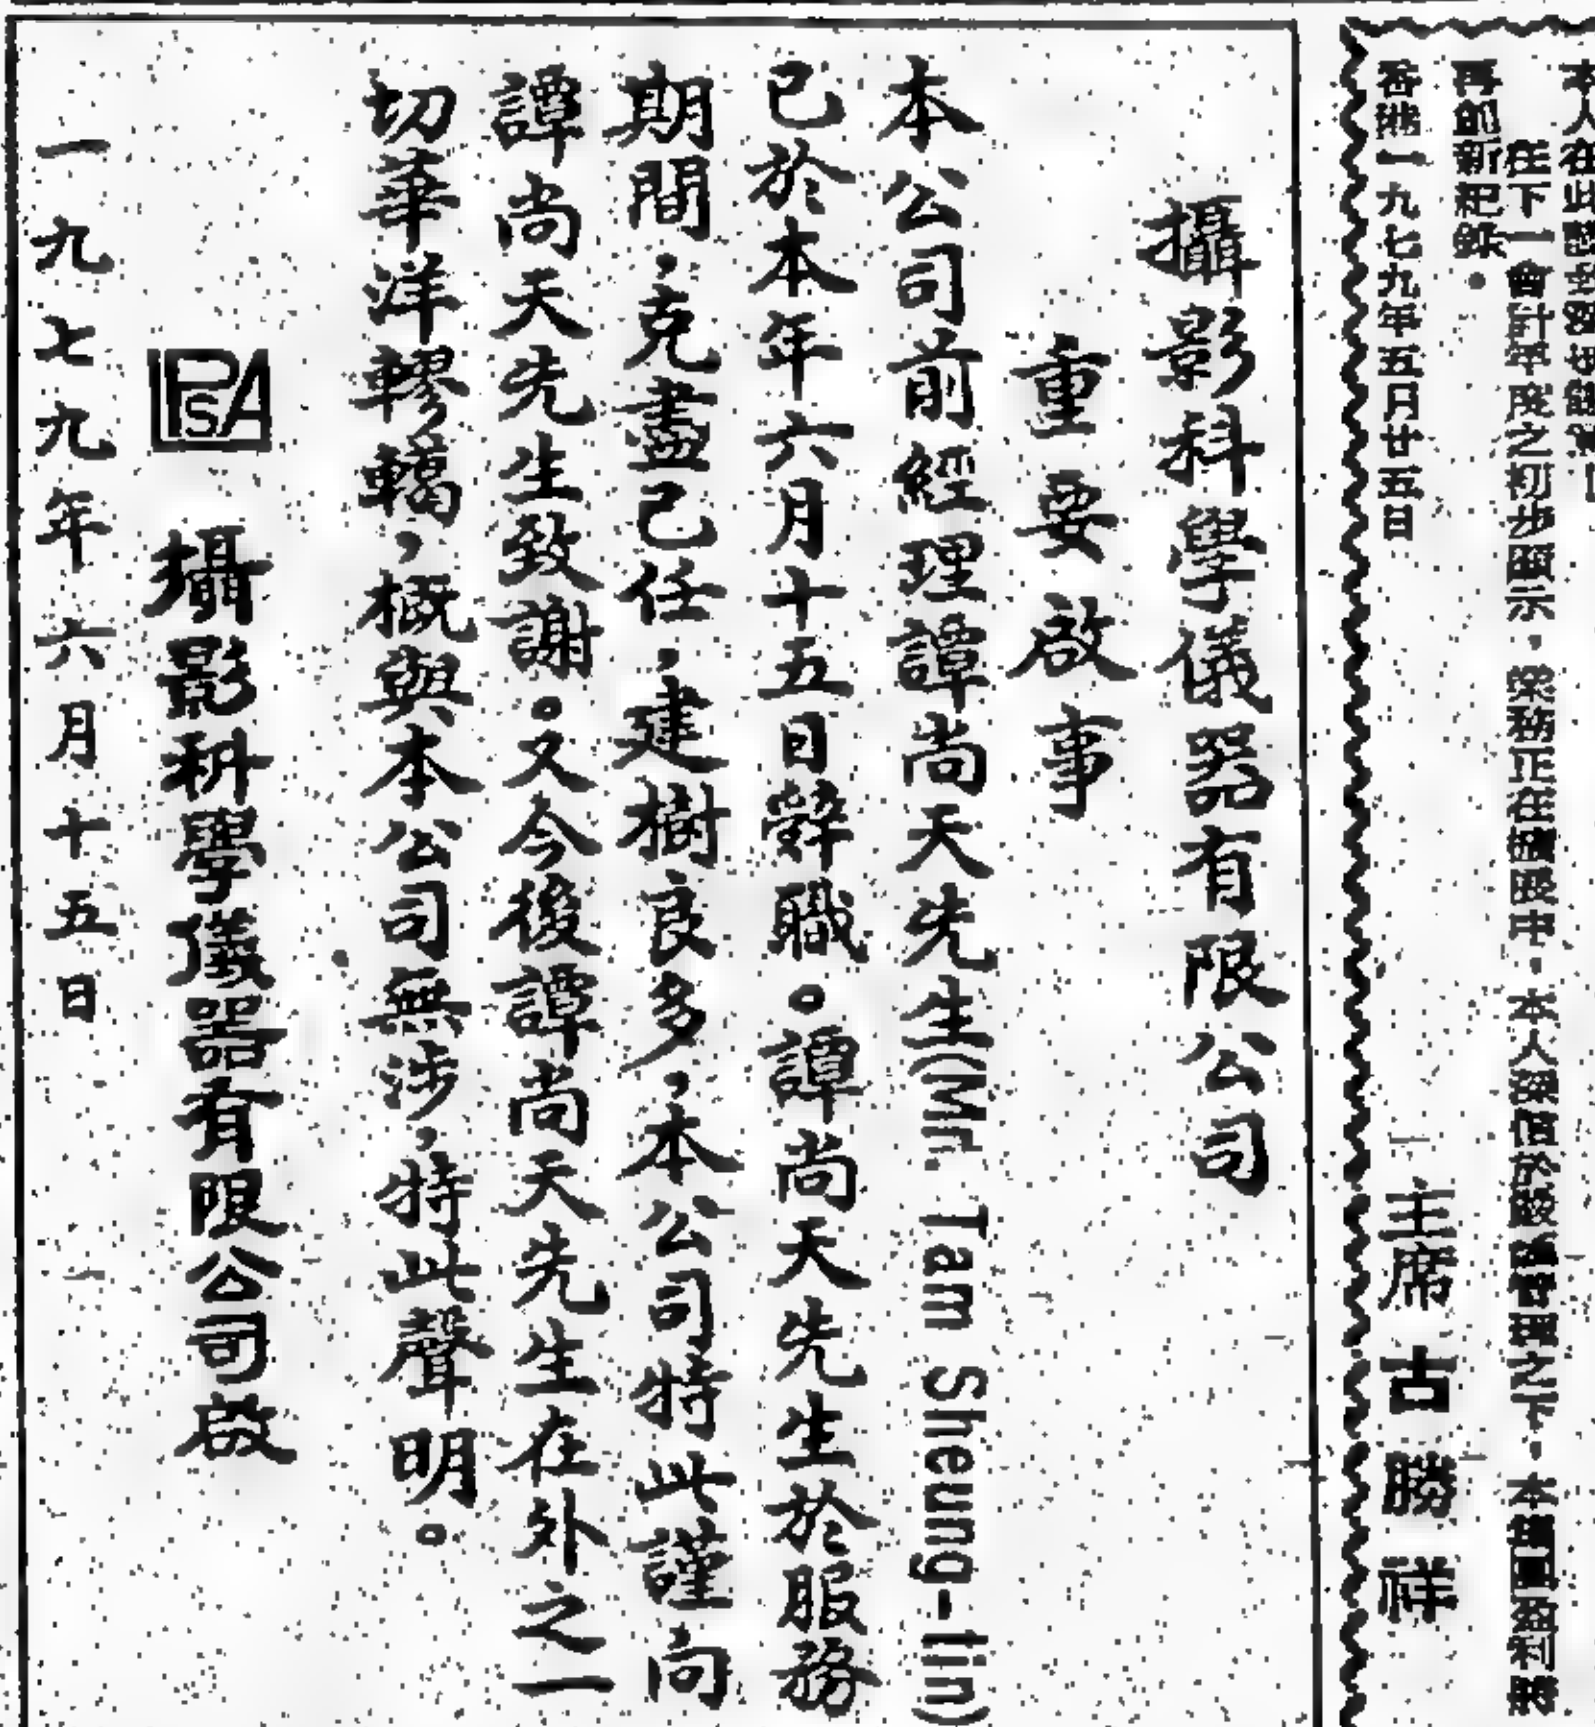 在下一會計年度之初步顯示，業務正在擴展中，本人深信於該經理之下，本集團盈利將
再創新紀錄。
香港一九七九年五月廿五日
主席 古勝祥
攝影科學儀器有限公司
重要啟事
本公司前經理譚尚天先生(Mr. Tam Sheung-tin)
已於本年六月十五日辭職。譚尚天先生於服務
期間，克盡己任，建樹良多，本公司特此謹向
譚尚天先生致謝。又今後譚尚天先生在外之一
切華洋轇轕，概與本公司無涉，特此聲明。
PSA 攝影科學儀器有限公司啟
一九七九年六月十五日